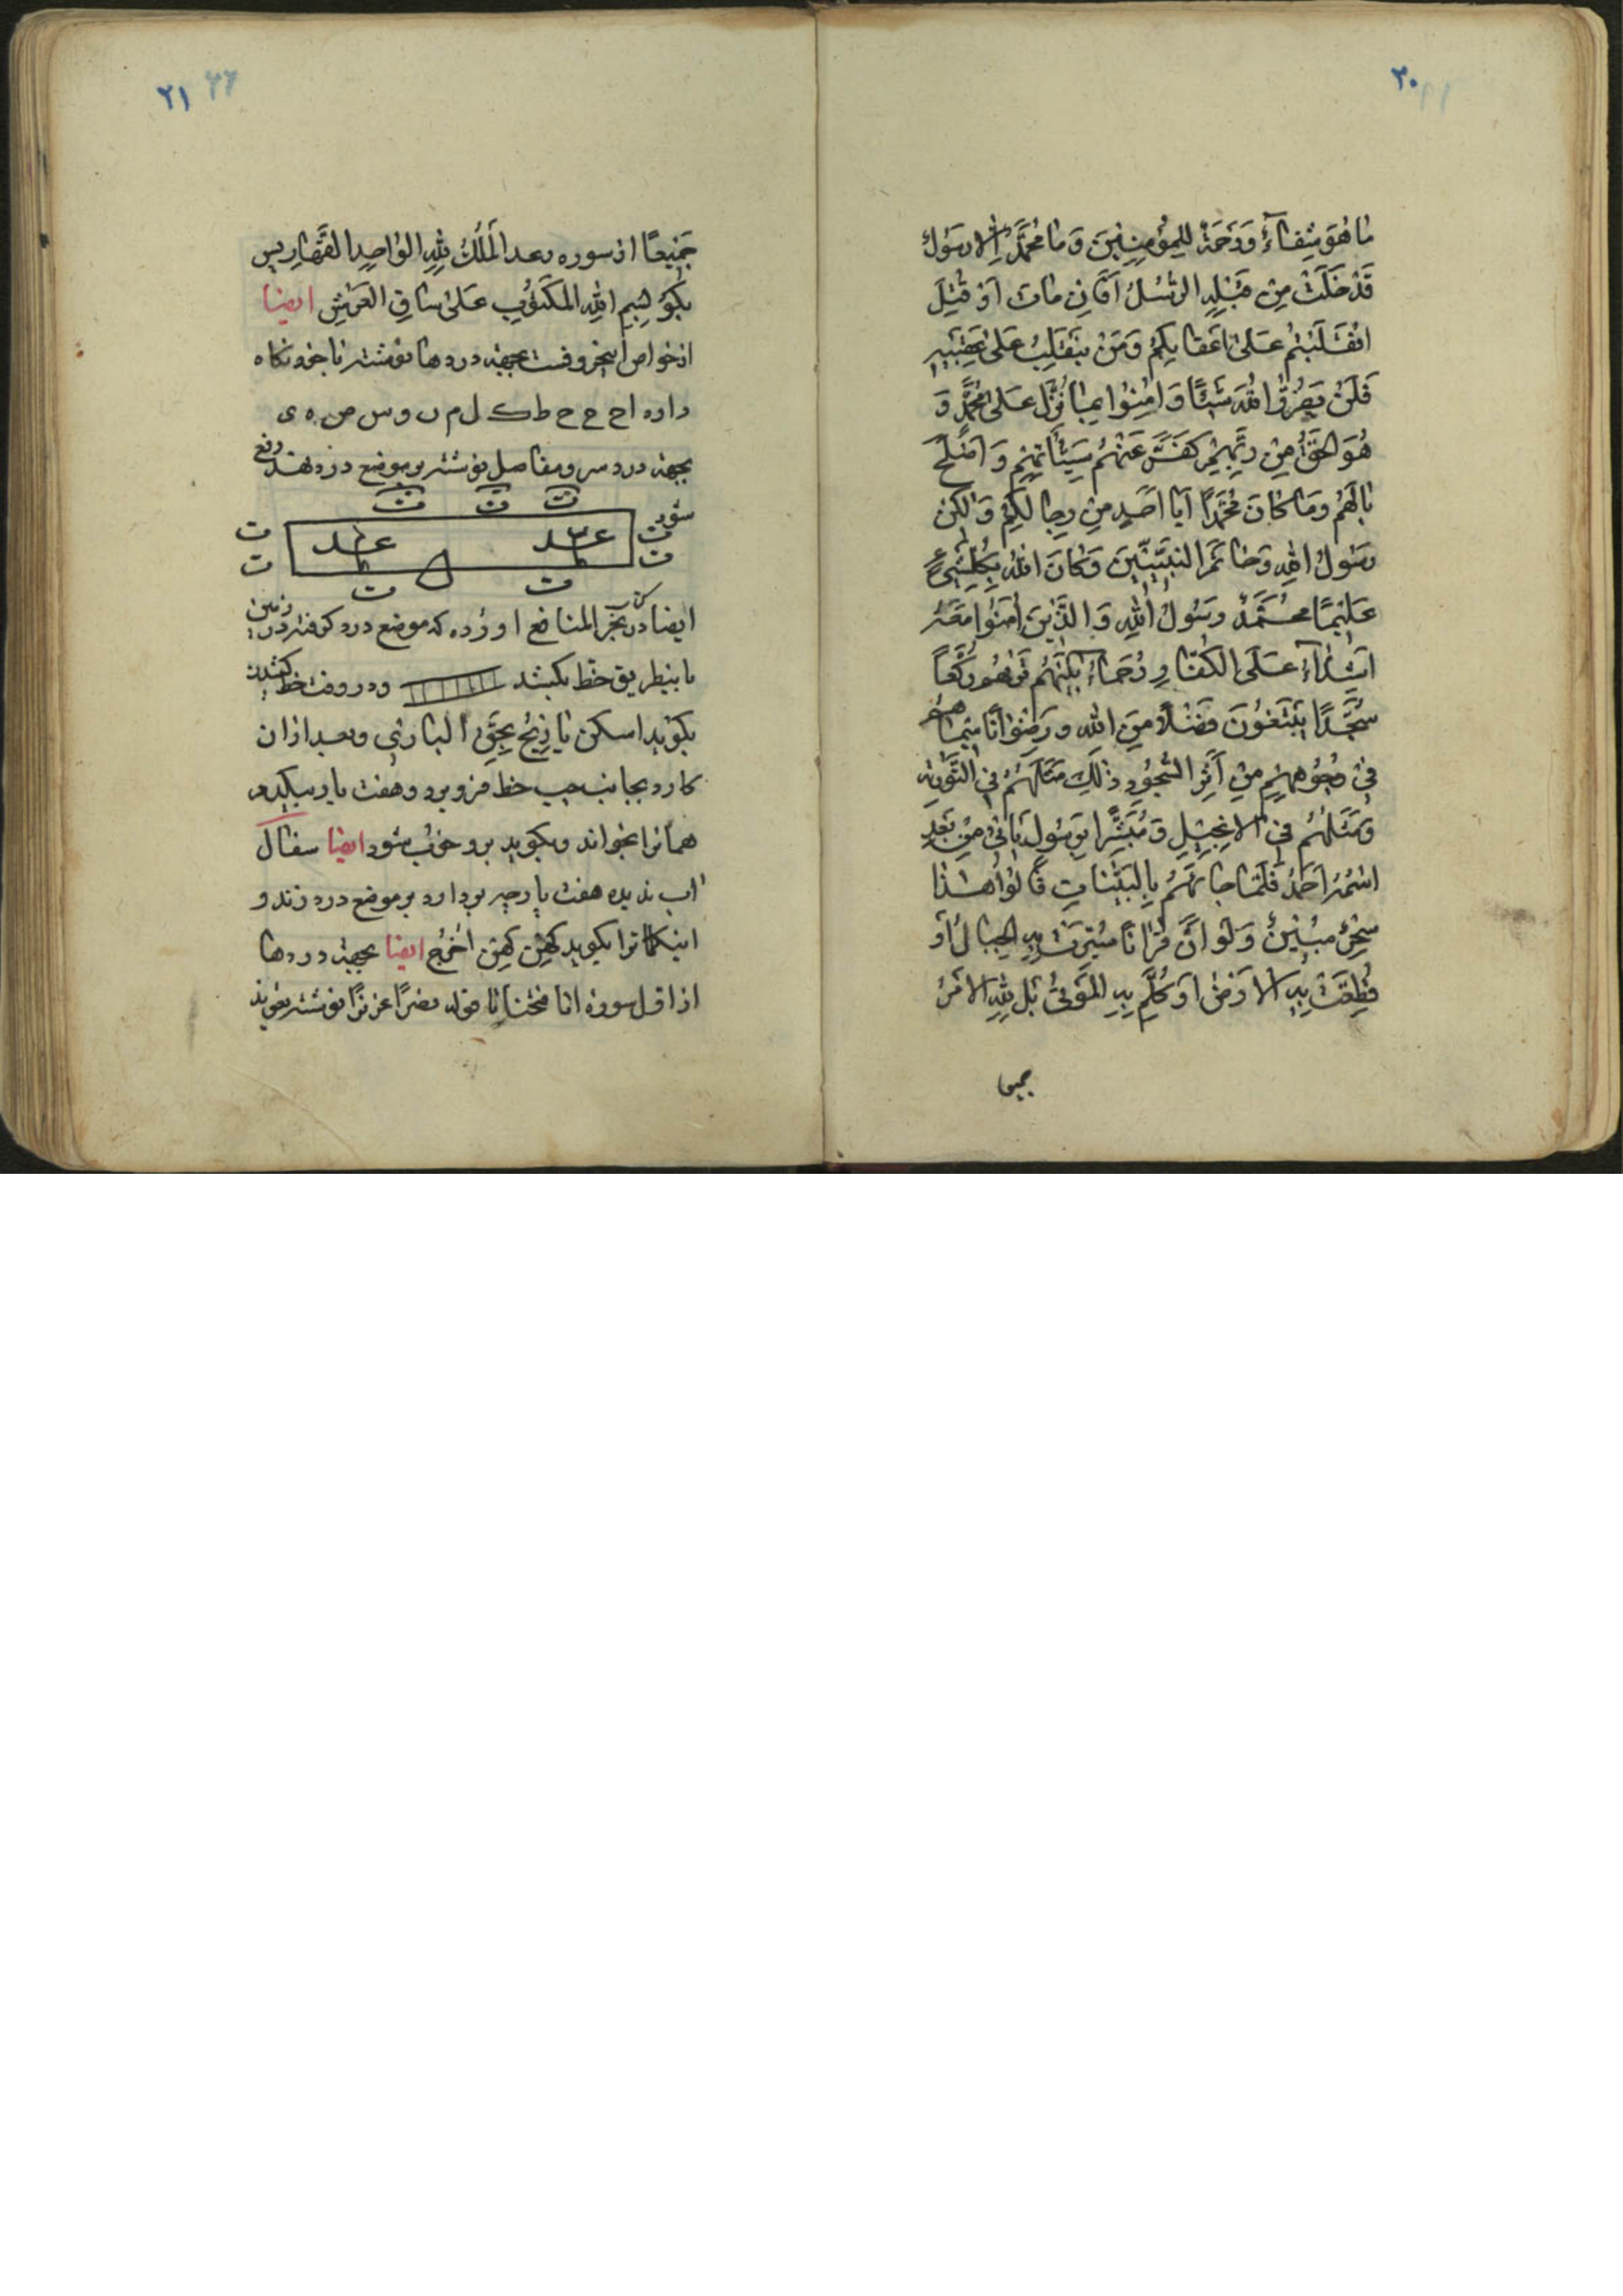 ۲۰
ما هُوَ شِفاءٌ وَرَحْمَةٌ لِلْمُؤْمِنِينَ وَما مُحَمَّدٌ اِلّا رَسُولٌ
قَدْ خَلَتْ مِنْ قَبْلِهِ الرُّسُلُ اَفَاِنْ ماتَ اَوْ قُتِلَ
انْقَلَبْتُمْ عَلىٰ اَعْقابِكُمْ وَمَنْ يَنْقَلِبْ عَلىٰ عَقِبَيْهِ
فَلَنْ يَضُرَّ اللهَ شَيْئًا وَ امِنُوا بِما نُزِّلَ عَلىٰ مُحَمَّدٍ وَ
هُوَ الحَقُّ مِنْ رَبِّهِمْ كَفَّرَ عَنْهُمْ سَيِّئاتِهِمْ وَ اَصْلَحَ
بالَهُمْ وَما كانَ مُحَمَّدٌ اَبا اَحَدٍ مِنْ رِجالِكُمْ وَلٰكِنْ
رَسُولَ اللهِ وَخاتَمَ النَّبِيِّينَ وَكانَ اللهُ بِكُلِّ شَيْءٍ
عَلِيمًا مُحَمَّدٌ رَسُولُ اللهِ وَ الَّذينَ امَنُوا مَعَهُ
اَشِدّاءُ عَلَى الكُفّارِ رُحَماءُ بَيْنَهُمْ تَرٰهُمْ رُكَّعًا
سُجَّدًا يَبْتَغُونَ فَضْلًا مِنَ الله وَ رِضْوانًا سِيماهُمْ
فى وُجُوهِهِمْ مِنْ اَثَرِ السُّجُودِ ذٰلِكَ مَثَلُهُمْ فِى التَّوْرٰيةِ
وَمَثَلُهُمْ فِى الاِنْجِيلِ وَ مُبَشِّرًا بِرَسُولٍ يَأتى مِنْ بَعْدِى
اسْمُهُ اَحْمَدُ فَلَمّا جاءَهُمْ بِالبَيِّناتِ قالُوا هٰذا
سِحْرٌ مُبِينٌ وَلَوْ اَنَّ قُرْانًا سُيِّرَتْ بِهِ الجِبالُ اَوْ
قُطِّعَتْ بِهِ الاَرْضُ اَوْ كُلِّمَ بِهِ المَوْتىٰ بَلْ لِلّهِ الاَمْرُ
جميعا
۲۱
جَمِيعًا از سوره رعد المُلْكُ لِلّهِ الواحِدِ القَهّارِ پس
بگو بِسْمِ اللهِ المَكْتُوبِ عَلىٰ ساقِ العَرْشِ ايضا
از خواص اينحروفست بجهة دردها نوشته با خود نگاه
دارد ا ح ح ح ح ط ك ل م ن و س ص ه ى
بجهة درد سر و مفاصل نوشته بر موضع درد نهند دفع
شود
ايضا در كتاب بحر المنافع اورده كه موضع درد گرفته در زمين
باينطريق خط بكشد و در وقت خط كشيدن
بگويد اسكن يا رِيْحُ بِحَقِّ البارئ و بعد ازان
كارد بجانب خط فرو برد و هفت بار بگيرد
همانرا بخواند و بگويد برو خوب شود ايضا سفال
اب نديده هفت پارچه بردارد بر موضع درد زند و
اينكلماترا بگويد كهن كهن اُخْرُج ايضا بجهة دردها
از اول سوره انا فتحنا تا قوله نصرًا عزيزًا نوشته